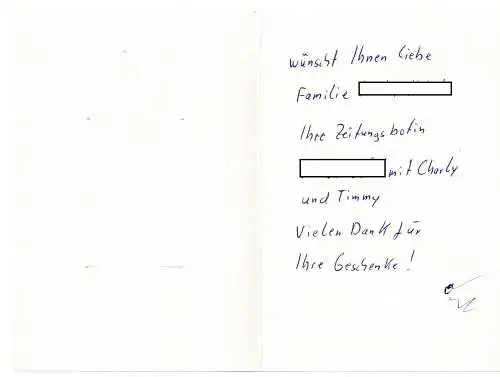 wünscht Ihnen liebe
Familie
Ihre Zeitungsbotin
mit Charly
und Timmy
Vielen Dank für
Ihre Geschenke!